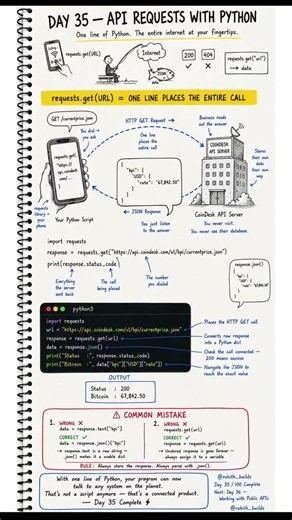 DAY 35 — API REQUESTS WITH PYTHON
One line of Python. The entire internet at your fingertips.
requests.get(URL)
Internet
JSON
200 404
✓ ✗
requests.get("url")
→ data
requests.get(URL) = ONE LINE PLACES THE ENTIRE CALL
GET /currentprice.json
You dial =
you ask
HTTP GET Request →
One line
places the
entire call
Business reads
out the answer
COINDESK
API SERVER
Stores
their own
data
their own
way
requests.get(
"https://
api.coindesk
.com/...
requests
library =
your phone
{
"bpi": {
"USD": {
"rate": "67,842.50"
}
}
}
← JSON Response
You just listen
to the answer
Your Python Script
CoinDesk API Server
You never visit.
You never see their database.
import requests
response = requests.get("https://api.coindesk.com/v1/bpi/currentprice.json")
print(response.status_code)
Everything
the server
sent back
The call
being placed
The number
you dialed
response.json()
python3
import requests
url = "https://api.coindesk.com/v1/bpi/currentprice.json"
response = requests.get(url)
data = response.json()
print("Status :", response.status_code)
print("Bitcoin :", data["bpi"]["USD"]["rate"])
Places the HTTP GET call
Converts raw response
into a Python dict
Check the call connected –
200 means success
Navigate the JSON to
reach the exact value
OUTPUT
Status : 200
Bitcoin : 67,842.50
⚠ COMMON MISTAKE
1. WRONG ✗
data = response.text["bpi"]
CORRECT ✓
data = response.json()["bpi"]
→ response.text is a raw string —
.json() makes it a usable dict
2. WRONG ✗
requests.get(url)
CORRECT ✓
response = requests.get(url)
→ Unstored response is gone forever —
always assign it to a variable
RULE: Always store the response. Always parse with .json().
With one line of Python, your program can now
talk to any system on the planet.
That's not a script anymore — that's a connected product.
— Day 35 Complete
@rohith_builds
Day 35 / 100 Complete
Next: Day 36 →
Working with Public APIs
@rohith_builds